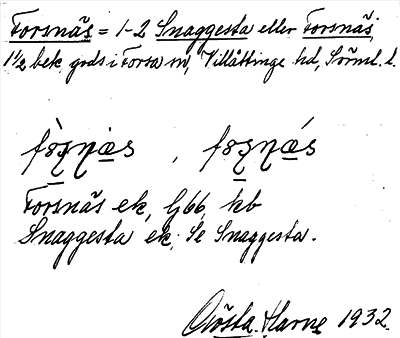 Forsnäs = 1-2 Snaggesta eller Forsnäs,
1½ bek. gods i Forsa sn, Villåttinge hd, Sörml. l.
Forsnäs ek, G66, kb
Snaggesta ek. Se Snaggesta.
Gösta Harne 1932.